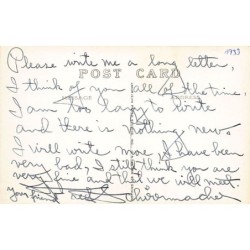 1933
Please write me a long letter,
I think of you all of the time.
POST CARD
I am too lazy to write
and there is nothing new.
I will write more. I have been
very bad, I still think you are
very fine and that we will meet.
your friend